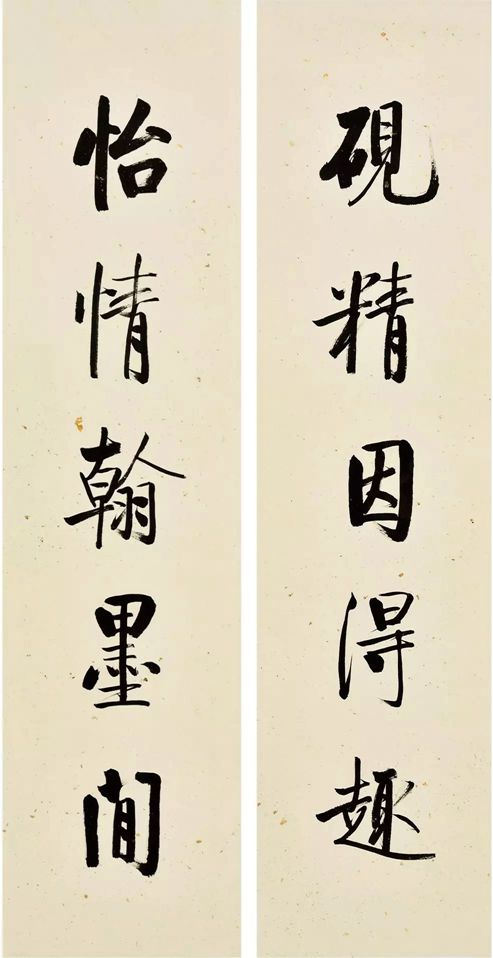 硯精因得趣
怡情翰墨間